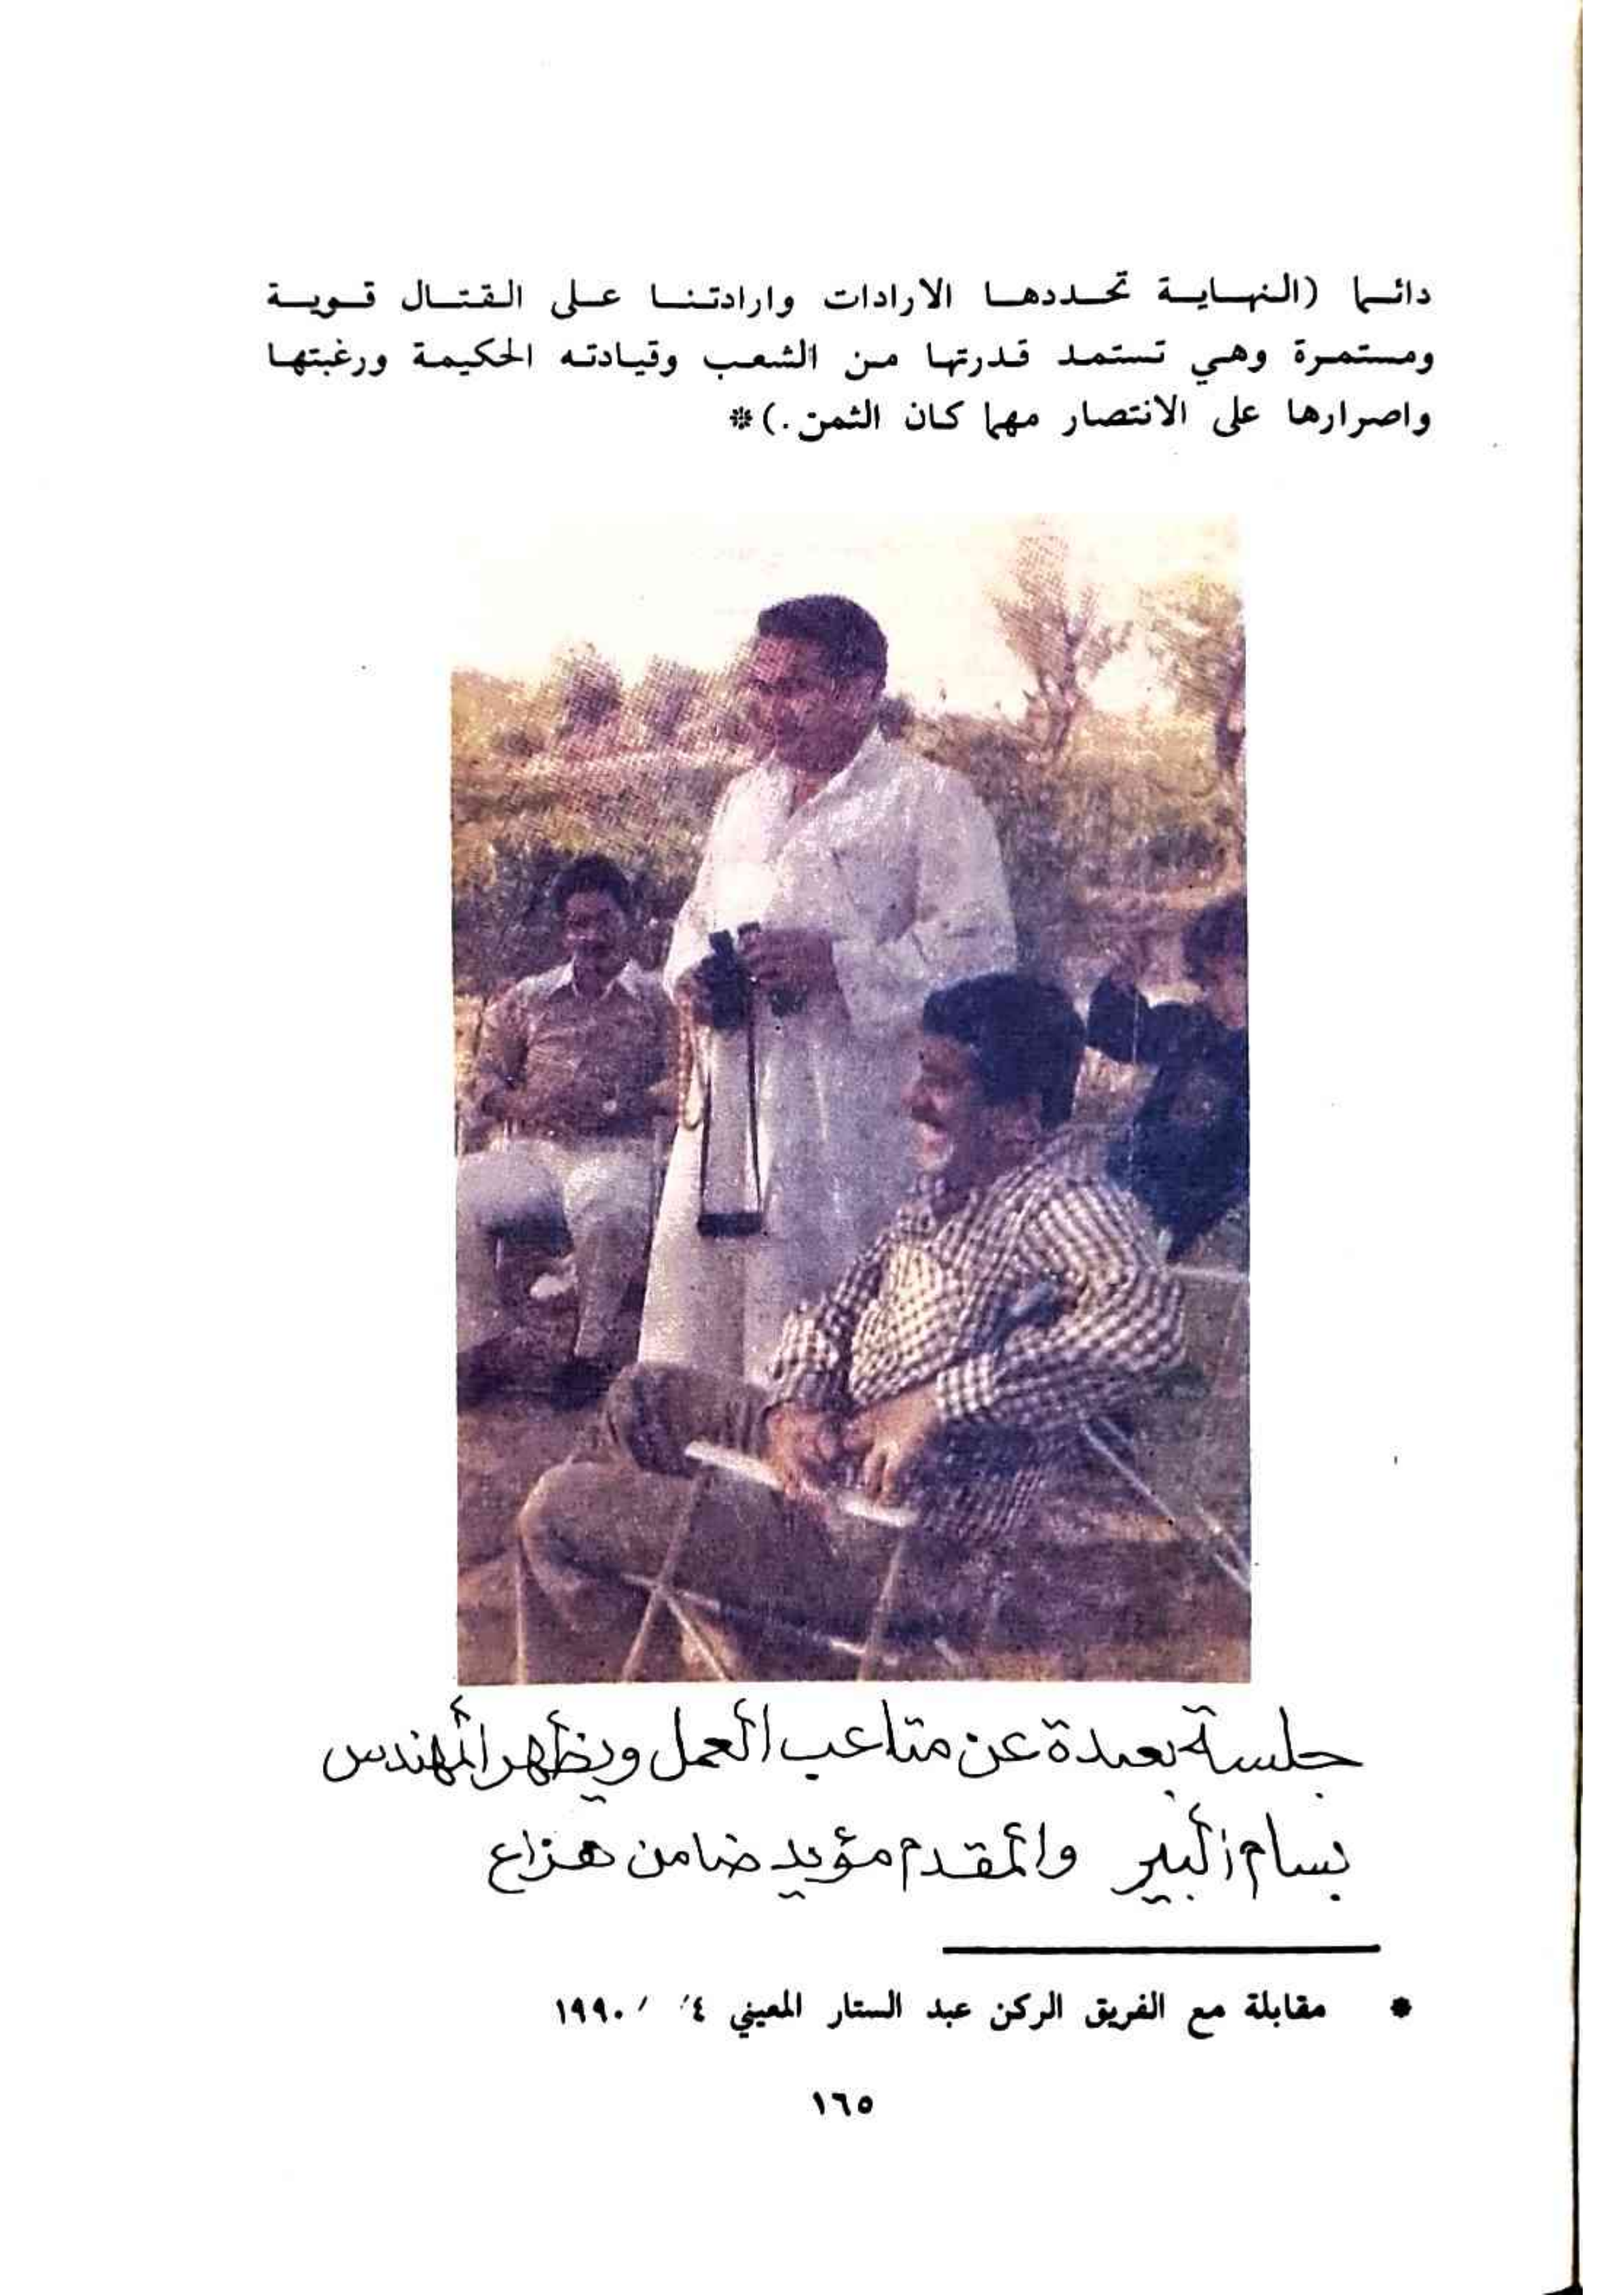 دائما (النهاية تحددها الارادات وارادتنا على القتال قوية
ومستمرة وهي تستمد قدرتها من الشعب وقيادته الحكيمة ورغبتها
واصرارها على الانتصار مهما كان الثمن.)*
جلسة بعيدة عن متاعب العمل ويظهر المهندس
بسام والمقدم مؤيد ضامن هزاع
* مقابلة مع الفريق الركن عبد الستار المعيني ٤/ /١٩٩٠
١٦٥